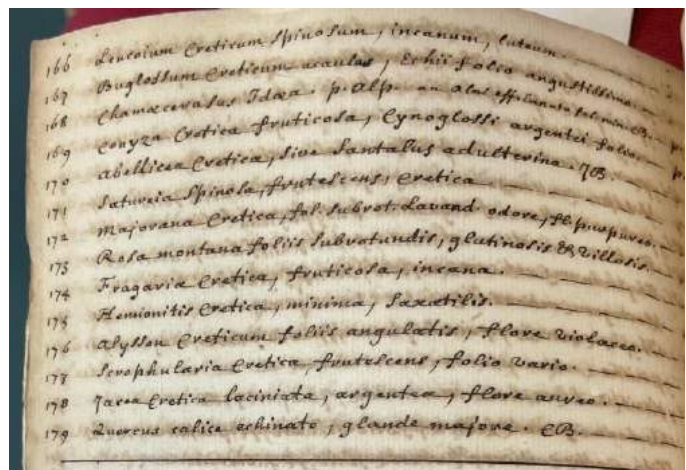 166 Leucoium Creticum spinosum, incanum, luteum.
167 Buglossum Creticum acaulos, Echii folio angustissimo.
168 Chamæcerasus Idæa. p. Alp. an Alni effi lanato fol. min. CB. p.
169 Conyza Cretica fruticosa, Cynoglossi argentei folio.
170 Abellicea Cretica, sive Santalus adulterina. JB. p.
171 Satureia Spinosa, frutescens, Cretica
172 Majorana Cretica, fol. subrot. Lavand. odore, fl. purpureo.
173 Rosa montana foliis subrotundis, glutinosis & villosis.
174 Fragaria Cretica, fruticosa, incana.
175 Hemionitis Cretica, minima, saxatilis.
176 Alysson Creticum foliis angulatis, flore violaceo.
177 Scrophularia Cretica, frutescens, folio vario.
178 Jacea Cretica laciniata, argentea, flore aureo.
179 Quercus calice echinato, glande majore. CB.